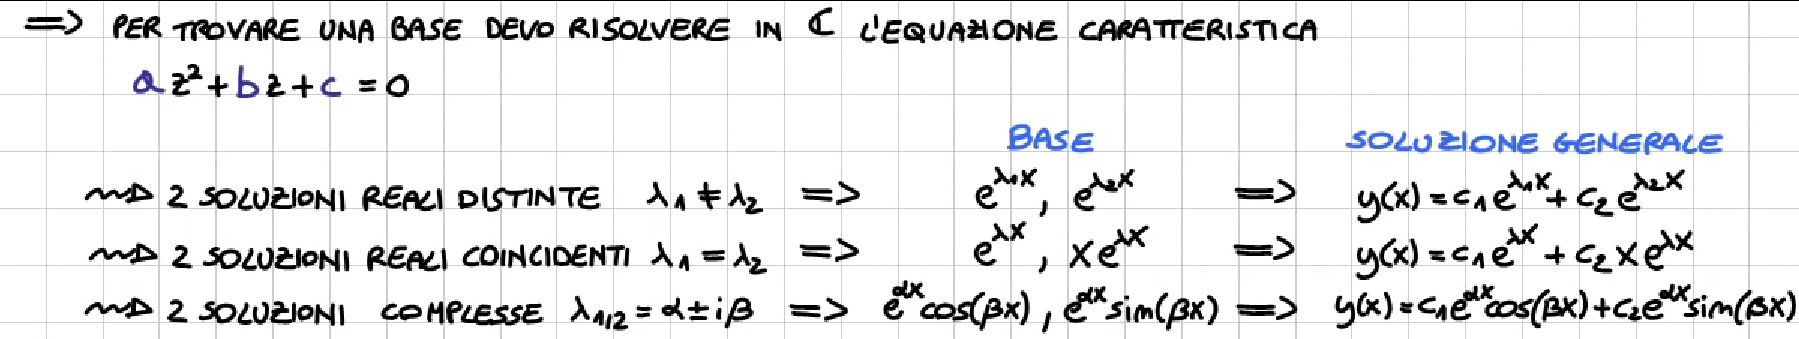 => PER TROVARE UNA BASE DEVO RISOLVERE IN ℂ L'EQUAZIONE CARATTERISTICA
az²+bz+c=0
BASE SOLUZIONE GENERALE
~~> 2 SOLUZIONI REALI DISTINTE λ₁≠λ₂ => e^{λ₁x}, e^{λ₂x} => y(x)=c₁e^{λ₁x}+c₂e^{λ₂x}
~~> 2 SOLUZIONI REALI COINCIDENTI λ₁=λ₂ => e^{λx}, xe^{λx} => y(x)=c₁e^{λx}+c₂xe^{λx}
~~> 2 SOLUZIONI COMPLESSE λ_{1/2}=α±iβ => e^{αx}cos(βx), e^{αx}sim(βx) => y(x)=c₁e^{αx}cos(βx)+c₂e^{αx}sim(βx)